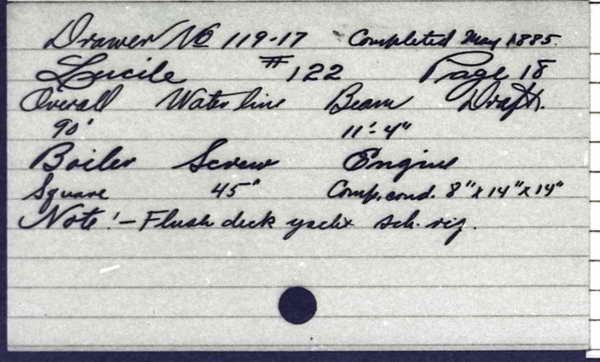 Drawer No 119-17 Completed May 1885.
Lucile #122 Page 18
Overall Water line Beam Draft.
90' 11'-4"
Boiler Screw Engine
Square 45" Comp. cond. 8"x14"x14"
Note! - Flush deck yacht sch. rig.